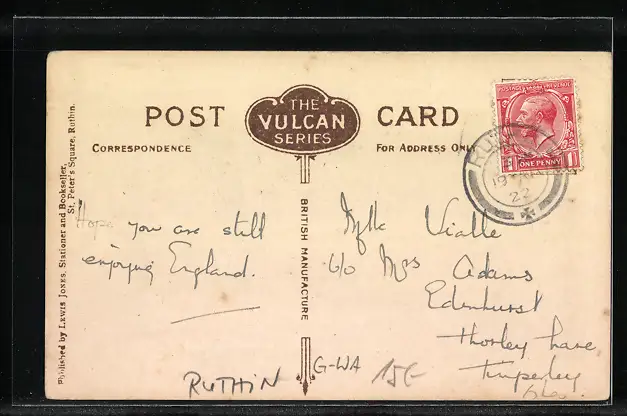 POST CARD
THE
VULCAN
SERIES
CORRESPONDENCE
FOR ADDRESS ONLY
POSTAGE REVENUE
ONE PENNY
RU
19
22
Published by LEWIS JONES, Stationer and Bookseller,
St. Peter's Square, Ruthin.
BRITISH MANUFACTURE
Hope you are still
enjoying England.
Mlle Vialle
c/o Mrs Adams
Edenhurst
Thorley Lane
Timperley
RUTHIN
G-WA
15E